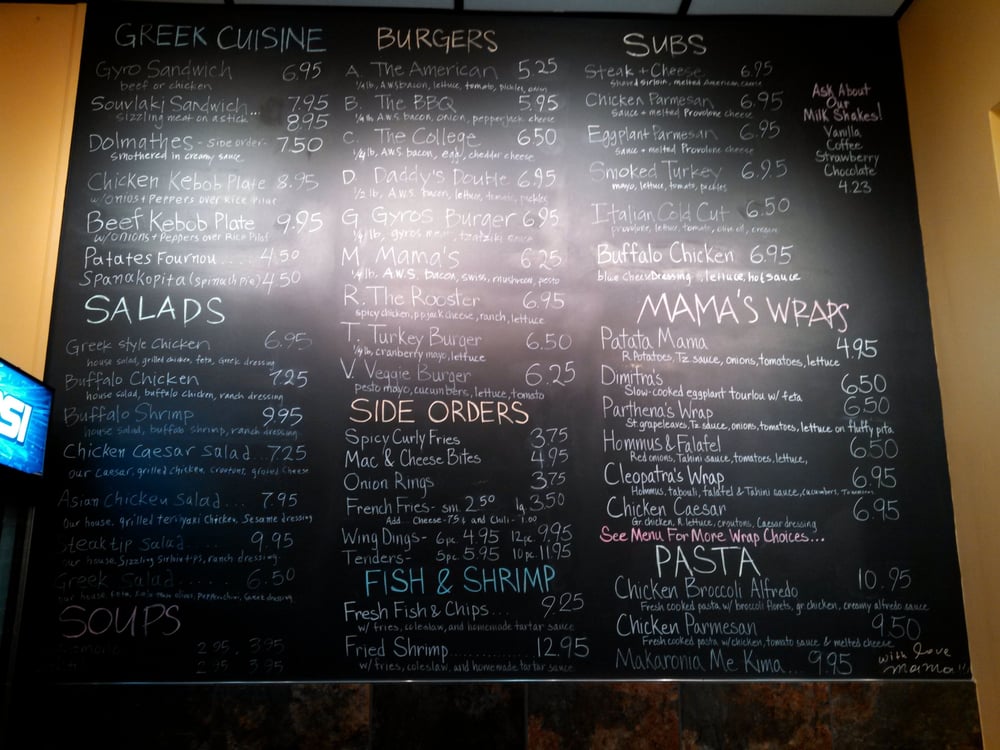 GREEK CUISINE
Gyro Sandwich 6.95
beef or chicken
Souvlaki Sandwich... 7.95
sizzling meat on a stick... 8.95
Dolmathes - side order - 7.50
smothered in creamy sauce
Chicken Kebob Plate 8.95
w/onions + Peppers over Rice Pilaf
Beef Kebob Plate 9.95
w/onions + Peppers over Rice Pilaf
Patates Fournou.... 4.50
Spanakopita (spinach pie) 4.50
SALADS
Greek style Chicken 6.95
house salad, grilled chicken, feta, Greek dressing
Buffalo Chicken 7.25
house salad, buffalo chicken, ranch dressing
Buffalo Shrimp 9.95
house salad, buffalo shrimp, ranch dressing
Chicken Caesar Salad... 7.25
our Caesar, grilled chicken, croutons, grated cheese
Asian Chicken Salad.... 7.95
Our house, grilled teriyaki Chicken, Sesame dressing
Steaktip Salad..... 9.95
our house, Sizzling Sirloin tips, ranch dressing
Greek Salad...... 6.50
SOUPS
2.95 . 3.95
2.95 3.95
BURGERS
A. The American 5.25
1/4 lb, AWS bacon, lettuce, tomato, pickles, onion
B. The BBQ 5.95
1/4 lb, AWS bacon, onion, pepperjack cheese
C. The College 6.50
1/4 lb, A.W.S. bacon, egg, cheddar cheese
D. Daddy's Double 6.95
1/2 lb, A.W.S. bacon, lettuce, tomato, pickles
G. Gyros Burger 6.95
1/4 lb, gyros meat, tzatziki sauce
M. Mama's 6.25
1/4 lb. A.W.S. bacon, swiss, mushroom, pesto
R. The Rooster 6.95
spicy chicken, ppjack cheese, ranch, lettuce
T. Turkey Burger 6.50
1/4 lb, cranberry mayo, lettuce
V. Veggie Burger 6.25
pesto mayo, cucumbers, lettuce, tomato
SIDE ORDERS
Spicy Curly Fries 3.75
Mac & Cheese Bites 4.95
Onion Rings 3.75
French Fries - sm. 2.50 lg. 3.50
Add.. Cheese - 75¢ and Chili - 1.00
Wing Dings - 6pc. 4.95 12pc. 9.95
Tenders - 5pc. 5.95 10pc. 11.95
FISH & SHRIMP
Fresh Fish & Chips... 9.25
w/ fries, coleslaw, and homemade tartar sauce
Fried Shrimp.............. 12.95
w/ fries, coleslaw, and homemade tartar sauce
SUBS
Steak + Cheese 6.95
Shaved sirloin, melted American cheese
Chicken Parmesan 6.95
sauce + melted Provolone cheese
Eggplant Parmesan 6.95
sauce + melted Provolone cheese
Smoked Turkey 6.95
mayo, lettuce, tomato, pickles
Italian Cold Cut 6.50
provolone, lettuce, tomato, olive oil,
Buffalo Chicken 6.95
blue cheese Dressing, lettuce, hot sauce
Ask About
Our
Milk Shakes!
Vanilla
Coffee
Strawberry
Chocolate
4.23
MAMA'S WRAPS
Patata Mama 4.95
R. Potatoes, Tz. sauce, onions, tomatoes, lettuce
Dimitra's 6.50
Slow-cooked eggplant tourlou w/ feta
Parthena's Wrap 6.50
St. grapeleaves, Tz sauce, onions, tomatoes, lettuce on fluffy pita
Hommus & Falafel 6.50
Red onions, Tahini sauce, tomatoes, lettuce,
Cleopatra's Wrap 6.95
Hommus, tabouli, falafel & Tahini sauce, cucumbers, Tomatoes
Chicken Caesar 6.95
Gr. chicken, R. lettuce, croutons, Caesar dressing
See Menu For More Wrap Choices...
PASTA
Chicken Broccoli Alfredo 10.95
Fresh cooked pasta w/ broccoli florets, gr. chicken, creamy alfredo sauce
Chicken Parmesan 9.50
Fresh cooked pasta w/ chicken, tomato sauce & melted cheese
Makaronia Me Kima... 9.95
with love
mama!!